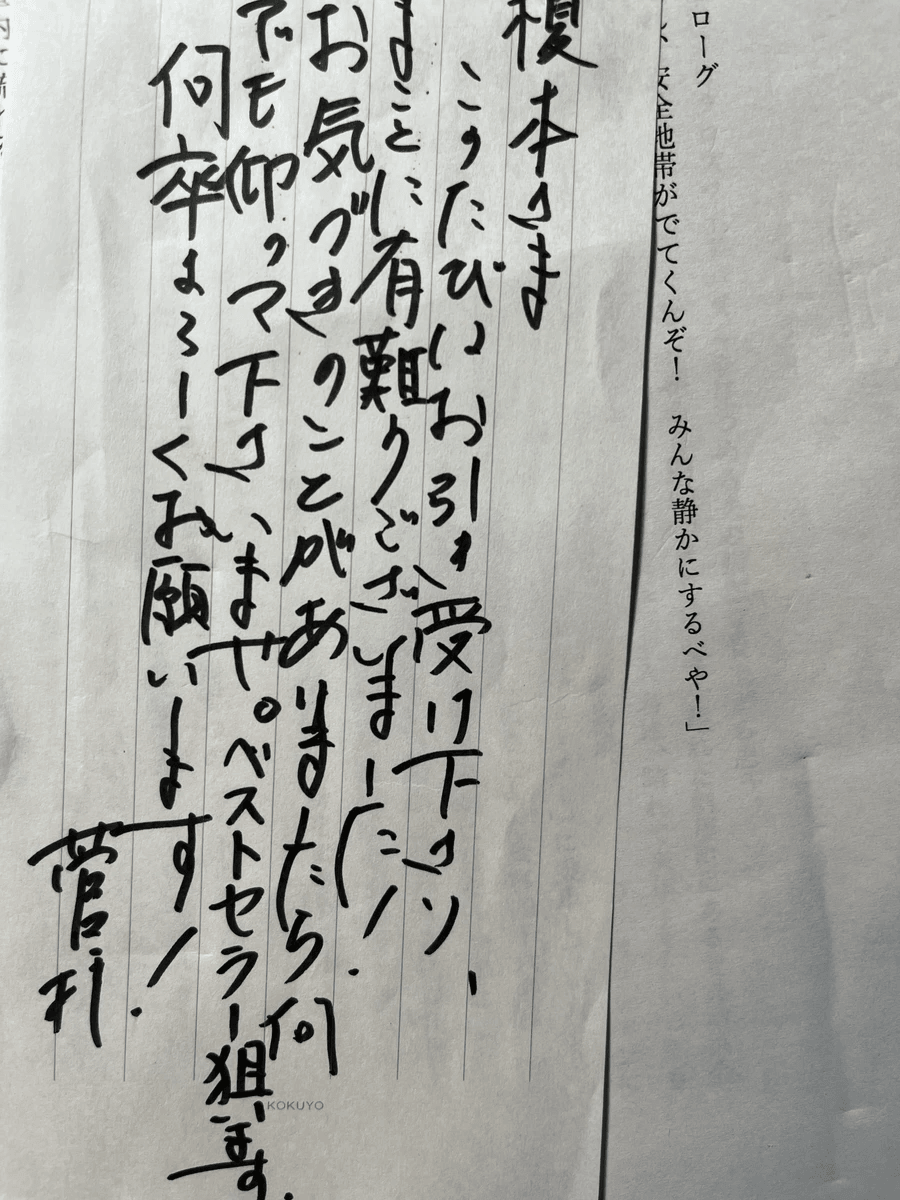 ローグ
安全地帯がでてくんぞ！　みんな静かにするべや！」
榎本さま
このたびはお引き受け下さり、
まことに有難うございました！
お気づきのことがありましたら何
でも仰って下さいませ。ベストセラー狙います。
何卒よろしくお願いします！
菅拝
KOKUYO